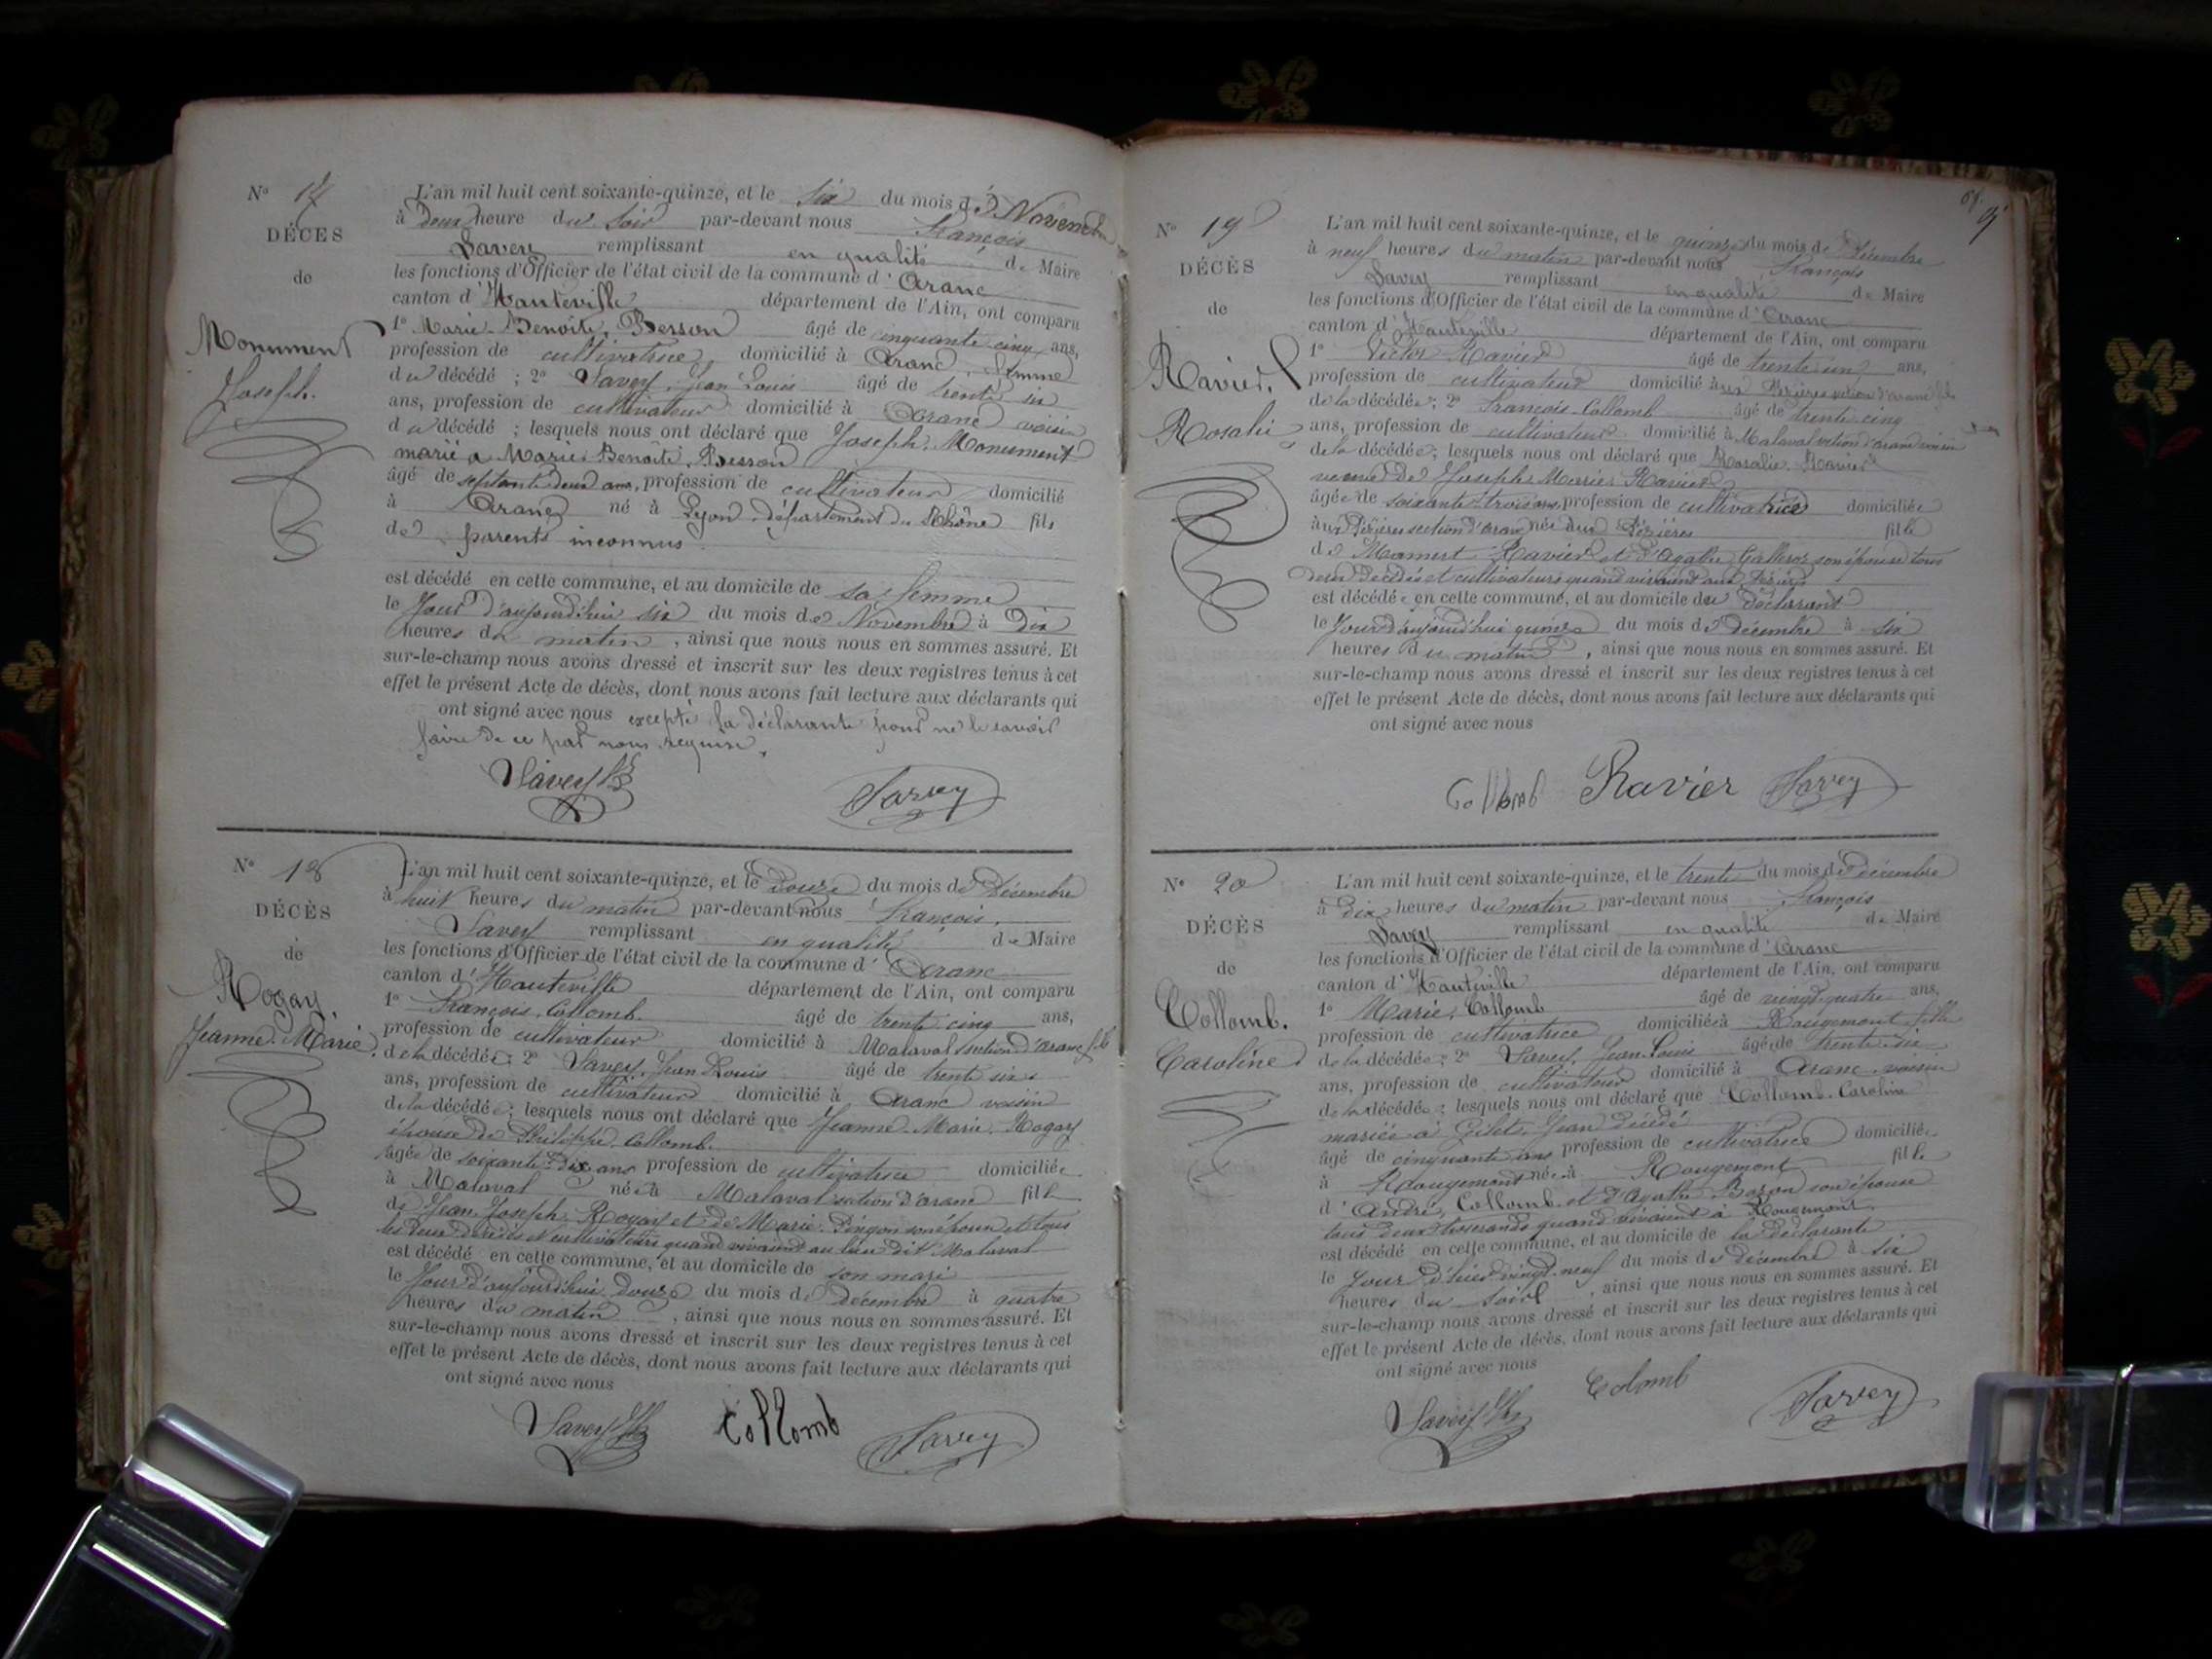 Nº 17
DÉCÈS
de
Monument
Joseph.
L'an mil huit cent soixante-quinze, et le six du mois de Novembre
à deux heure du soir par-devant nous François
Savey remplissant en qualité de Maire
les fonctions d'Officier de l'état civil de la commune d'Aranc
canton d'Hauteville département de l'Ain, ont comparu
1º Marie Benoîte Besson âgé de cinquante cinq ans,
profession de cultivatrice, domicilié à Aranc, femme
du décédé ; 2º Savey, Jean Louis âgé de trente six
ans, profession de cultivateur domicilié à Aranc voisin
du décédé ; lesquels nous ont déclaré que Joseph Monument
marié a Marie Benoîte Besson
âgé de septante deux ans, profession de cultivateur domicilié
à Aranc né à Lyon, département du Rhône fils
de parents inconnus.
est décédé en cette commune, et au domicile de sa femme
le Jour d'aujourd'hui six du mois de Novembre à dix
heures du matin, ainsi que nous nous en sommes assuré. Et
sur-le-champ nous avons dressé et inscrit sur les deux registres tenus à cet
effet le présent Acte de décès, dont nous avons fait lecture aux déclarants qui
ont signé avec nous excepté la déclarante pour ne le savoir
faire de ce par nous requise.
Savey Savey
Nº 18
DÉCÈS
de
Rogay
Jeanne Marie.
L'an mil huit cent soixante-quinze, et le douze du mois de décembre
à huit heures du matin par-devant nous François
Savey remplissant en qualité de Maire
les fonctions d'Officier de l'état civil de la commune d'Aranc
canton d'Hauteville département de l'Ain, ont comparu
1º François Collomb. âgé de trente cinq ans,
profession de cultivateur domicilié à Malaval section d'aranc fils
de la décédée ; 2º Savey, Jean Louis âgé de trente six
ans, profession de cultivateur domicilié à Aranc voisin
de la décédée ; lesquels nous ont déclaré que Jeanne Marie Rogay
épouse de Philippe Collomb.
âgée de soixante dix ans profession de cultivatrice domiciliée
à Malaval née à Malaval section d'aranc fille
de Jean Joseph Rogay et de Marie son épouse et tous
les deux décédés et cultivateurs quand vivaient au lieu dit Malaval
est décédé en cette commune, et au domicile de son mari
le Jour d'aujourd'hui douze du mois de décembre à quatre
heures du matin, ainsi que nous nous en sommes assuré. Et
sur-le-champ nous avons dressé et inscrit sur les deux registres tenus à cet
effet le présent Acte de décès, dont nous avons fait lecture aux déclarants qui
ont signé avec nous
Savey Collomb Savey
Nº 19
DÉCÈS
de
Ravier,
Rosalie
L'an mil huit cent soixante-quinze, et le quinze du mois de décembre
à neuf heures du matin par-devant nous François
Savey remplissant en qualité de Maire
les fonctions d'Officier de l'état civil de la commune d'Aranc
canton d'Hauteville département de l'Ain, ont comparu
1º Victor Ravier âgé de trente un ans,
profession de cultivateur domicilié aux section d'aranc fils
de la décédée ; 2º François Collomb âgé de trente cinq
ans, profession de cultivateur domicilié à Malaval section d'aranc voisin
de la décédée ; lesquels nous ont déclaré que Rosalie Ravier
veuve de Joseph Marie Ravier
âgée de soixante trois ans, profession de cultivatrice domiciliée
aux section d'aranc née aux fille
de Mamert Ravier et d'Agathe son épouse tous
deux décédés et cultivateurs quand vivaient aux
est décédée en cette commune, et au domicile du déclarant
le Jour d'aujourd'hui quinze du mois de décembre à six
heures du matin, ainsi que nous nous en sommes assuré. Et
sur-le-champ nous avons dressé et inscrit sur les deux registres tenus à cet
effet le présent Acte de décès, dont nous avons fait lecture aux déclarants qui
ont signé avec nous
Collomb Ravier Savey
Nº 20
DÉCÈS
de
Collomb.
Caroline
L'an mil huit cent soixante-quinze, et le trente du mois de décembre
à dix heures du matin par-devant nous François
Savey remplissant en qualité de Maire
les fonctions d'Officier de l'état civil de la commune d'Aranc
canton d'Hauteville département de l'Ain, ont comparu
1º Marie, Collomb âgé de vingt quatre ans,
profession de cultivatrice domiciliée à Rougemont fille
de la décédée ; 2º Savey, Jean Louis âgé de trente six
ans, profession de cultivateur domicilié à Aranc voisin
de la décédée ; lesquels nous ont déclaré que Collomb. Caroline
mariée à Gilet, Jean décédé
âgé de cinquante ans profession de cultivatrice domiciliée
à Rougemont née à Rougemont fille
d'André, Collomb et d'Agathe son épouse
tous deux tisserands quand vivaient à Rougemont
est décédé en cette commune, et au domicile de la déclarante
le Jour d'hier vingt neuf du mois de décembre à six
heures du soir, ainsi que nous nous en sommes assuré. Et
sur-le-champ nous avons dressé et inscrit sur les deux registres tenus à cet
effet le présent Acte de décès, dont nous avons fait lecture aux déclarants qui
ont signé avec nous
Savey Colomb Savey